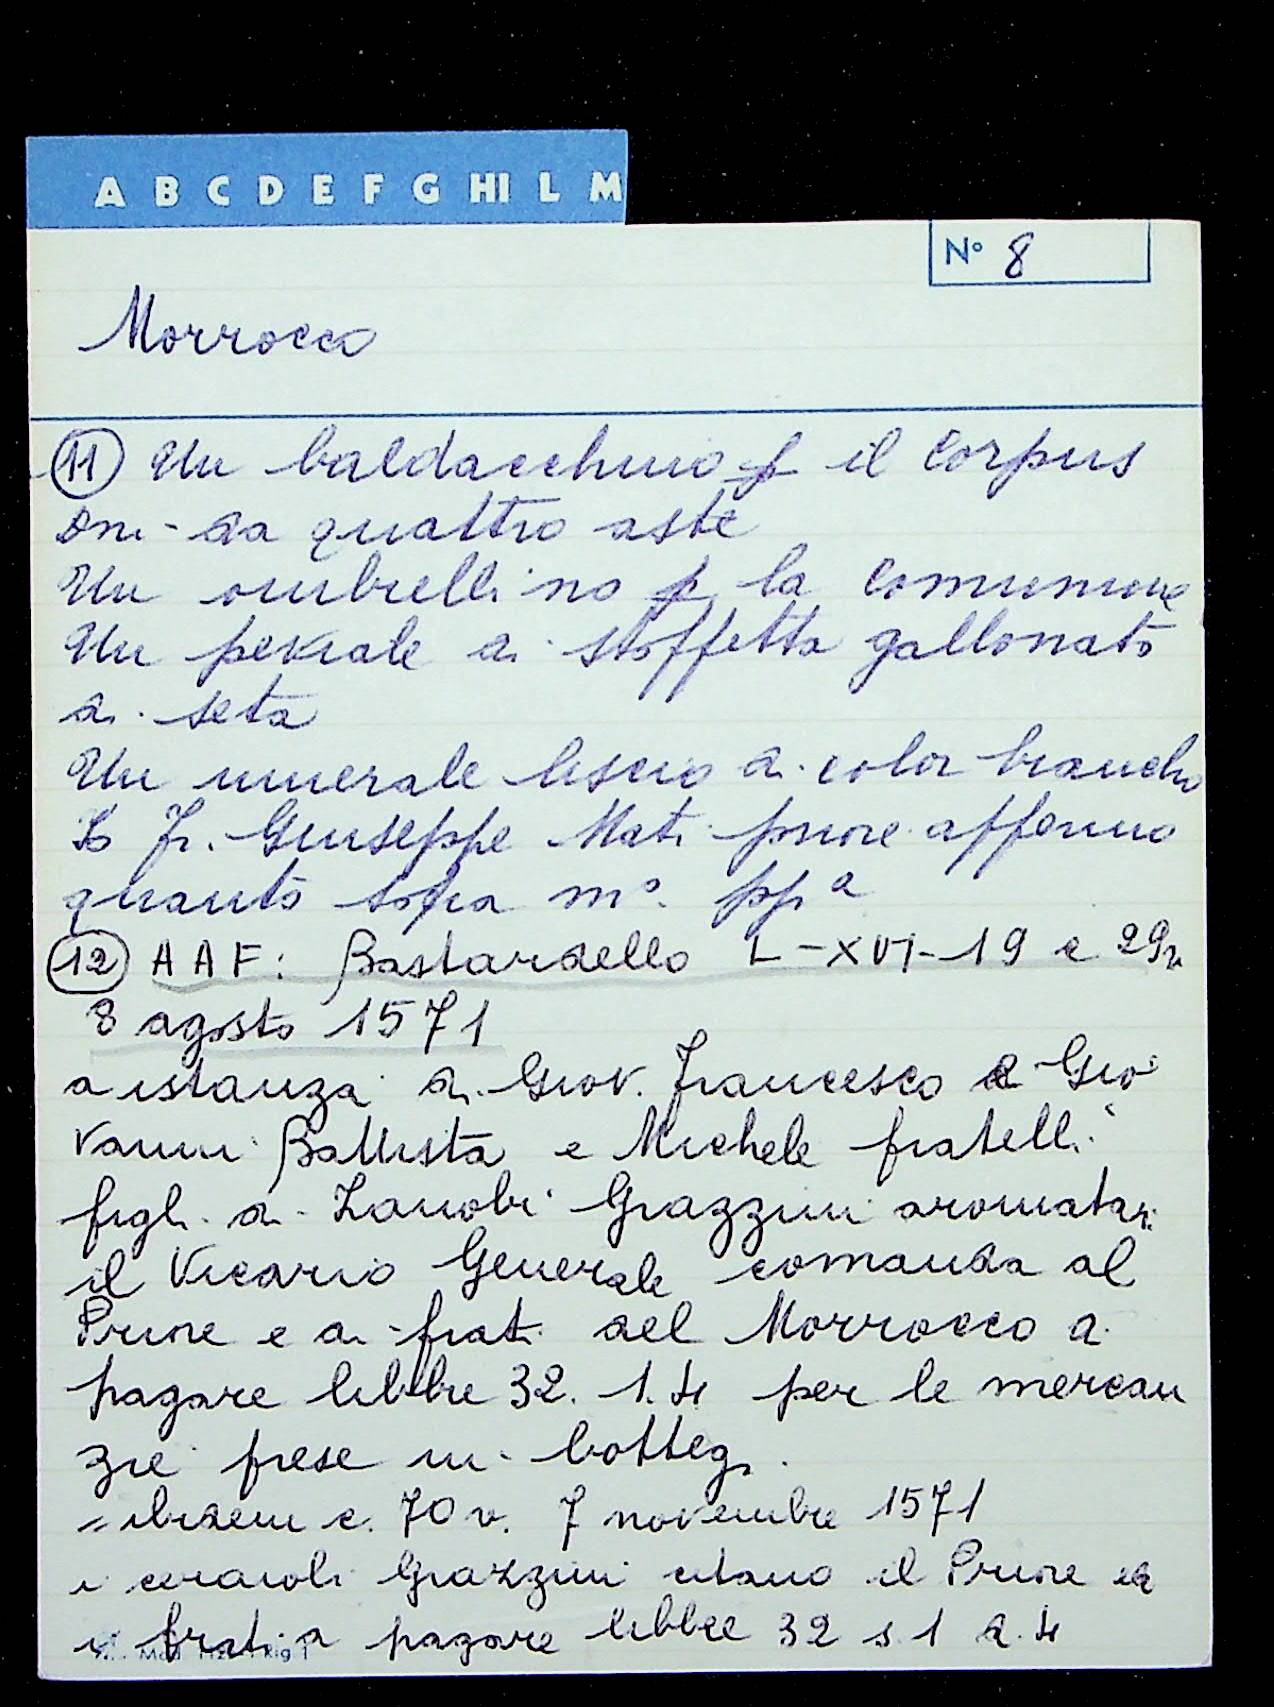 A B C D E F G HI L M
N° 8
Morrocco
11 Un baldacchino p il Corpus
Dni - da quattro aste
Un ombrellino p la comunione
Un peviale di stoffetta gallonato
di seta
Un umerale liscio di color biancho
Io Fr. Giuseppe Mati priore affermo
quanto sopra m° ppa
12 AAF: Bastardello L-XVI-19 c 29v
8 agosto 1571
a istanza di Giov. Francesco e Gio
vanni Battista e Michele fratelli
figli di Zanobi Grazzini aromatari
il Vicario Generale comanda al
Priore e ai frati del Morrocco di
pagare libbre 32. 1.4 per le mercan
zie prese in bottega.
= ibidem c. 70 v. 7 novembre 1571
i ceraioli Grazzini citano il Priore ed
i frati a pagare libbre 32 s.1 d.4